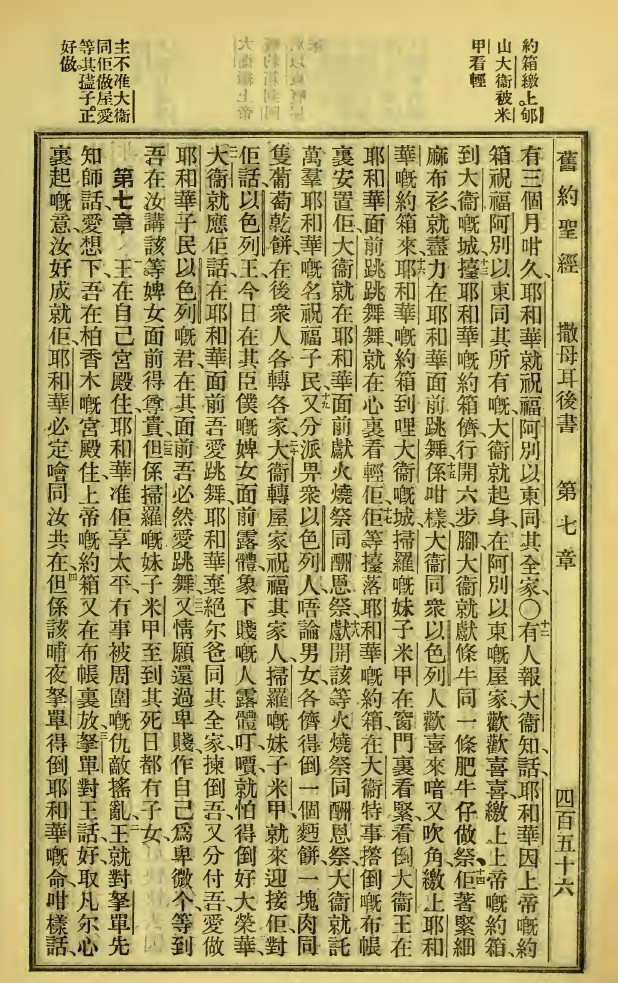 約箱繳上郇
山大衞被米
甲看輕
主不准大衞
同佢做屋愛
等其㜽子正
好做
舊約聖經 撒母耳後書 第七章 四百五十六
有三個月咁久、耶和華就祝福阿別以東同其全家、〇十二有人報大衞知話、耶和華因上帝嘅約
箱祝福阿別以東同其所有嘅、大衞就起身、在阿別以東嘅屋家、歡歡喜喜繳上上帝嘅約箱、
到大衞嘅城、十三擡耶和華嘅約箱儕行開六步腳、大衞就獻條牛同一條肥牛仔做祭、十四佢著緊細
麻布衫、就盡力在耶和華面前跳舞、十五係咁樣大衞同衆以色列人歡喜來喑、又吹角、繳上耶和
華嘅約箱來、十六耶和華嘅約箱到哩大衞嘅城、掃羅嘅妹子米甲在窗門裏看緊、看倒大衞王在
耶和華面前跳跳舞舞、就在心裏看輕佢、十七佢等擡落耶和華嘅約箱、在大衞特事撘倒嘅布帳
裏安置佢、大衞就在耶和華面前獻火燒祭同酬恩祭、十八獻開該等火燒祭同酬恩祭、大衞就託
萬羣耶和華嘅名祝福子民、十九又分派畀衆以色列人、唔論男女、各儕得倒一個麪餅、一塊肉、同
隻葡萄乾餅、在後衆人各轉各家、二十大衞轉屋家祝福其家人、掃羅嘅妹子米甲就來迎接佢、對
佢話、以色列王今日在其臣僕嘅婢女面前露體、象下賤嘅人露體叮囋、就怕得倒好大榮華、
二一大衞就應佢話、在耶和華面前吾愛跳舞、耶和華棄絕尔爸同其全家、揀倒吾、又分付吾愛做
耶和華子民以色列嘅君、在其面前吾必然愛跳舞、二二又情願還過卑賤、作自己爲卑微个等、到
吾在汝講該等婢女面前得尊貴、二三但係掃羅嘅妹子米甲、至到其死日都冇子女、
第七章 一王在自己宮殿住、耶和華准佢享太平、冇事被周圍嘅仇敵搖亂、二王就對拏單先
知師話、愛想下、吾在柏香木嘅宮殿住、上帝嘅約箱又在布帳裏放、三拏單對王話、好取凡尔心
裏起嘅意、汝好成就佢、耶和華必定噲同汝共在、四但係該晡夜拏單得倒耶和華嘅命咁樣話、